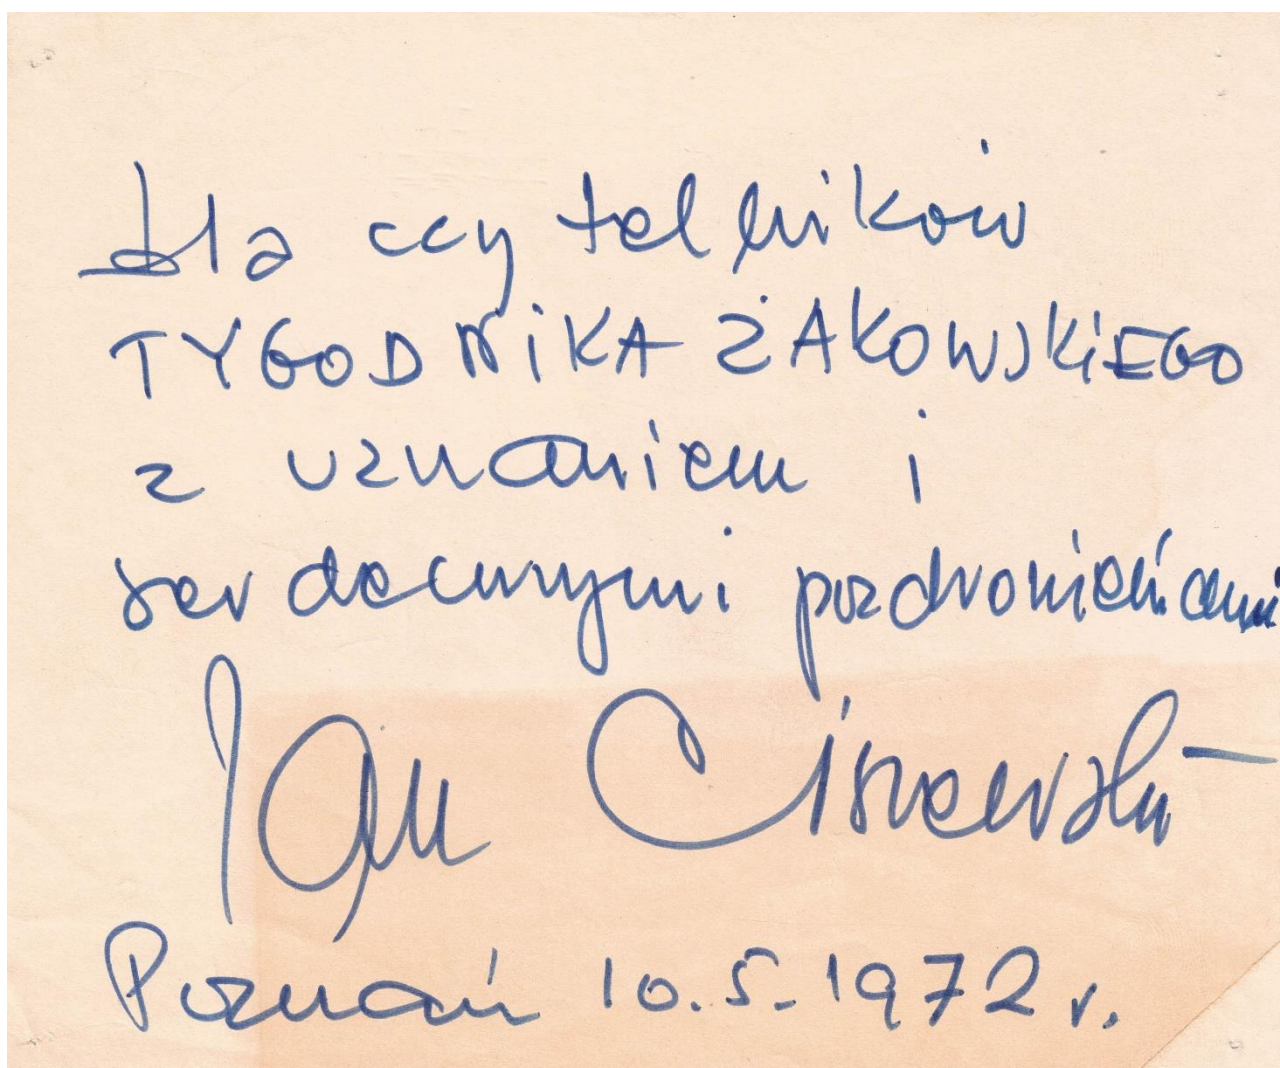 Dla czytelników
TYGODNiKA ŻAKOWSKiEGO
z uznaniem i
serdecznymi pozdrowieniami
Jan Ciszewski
Poznań 10.5.1972 r.